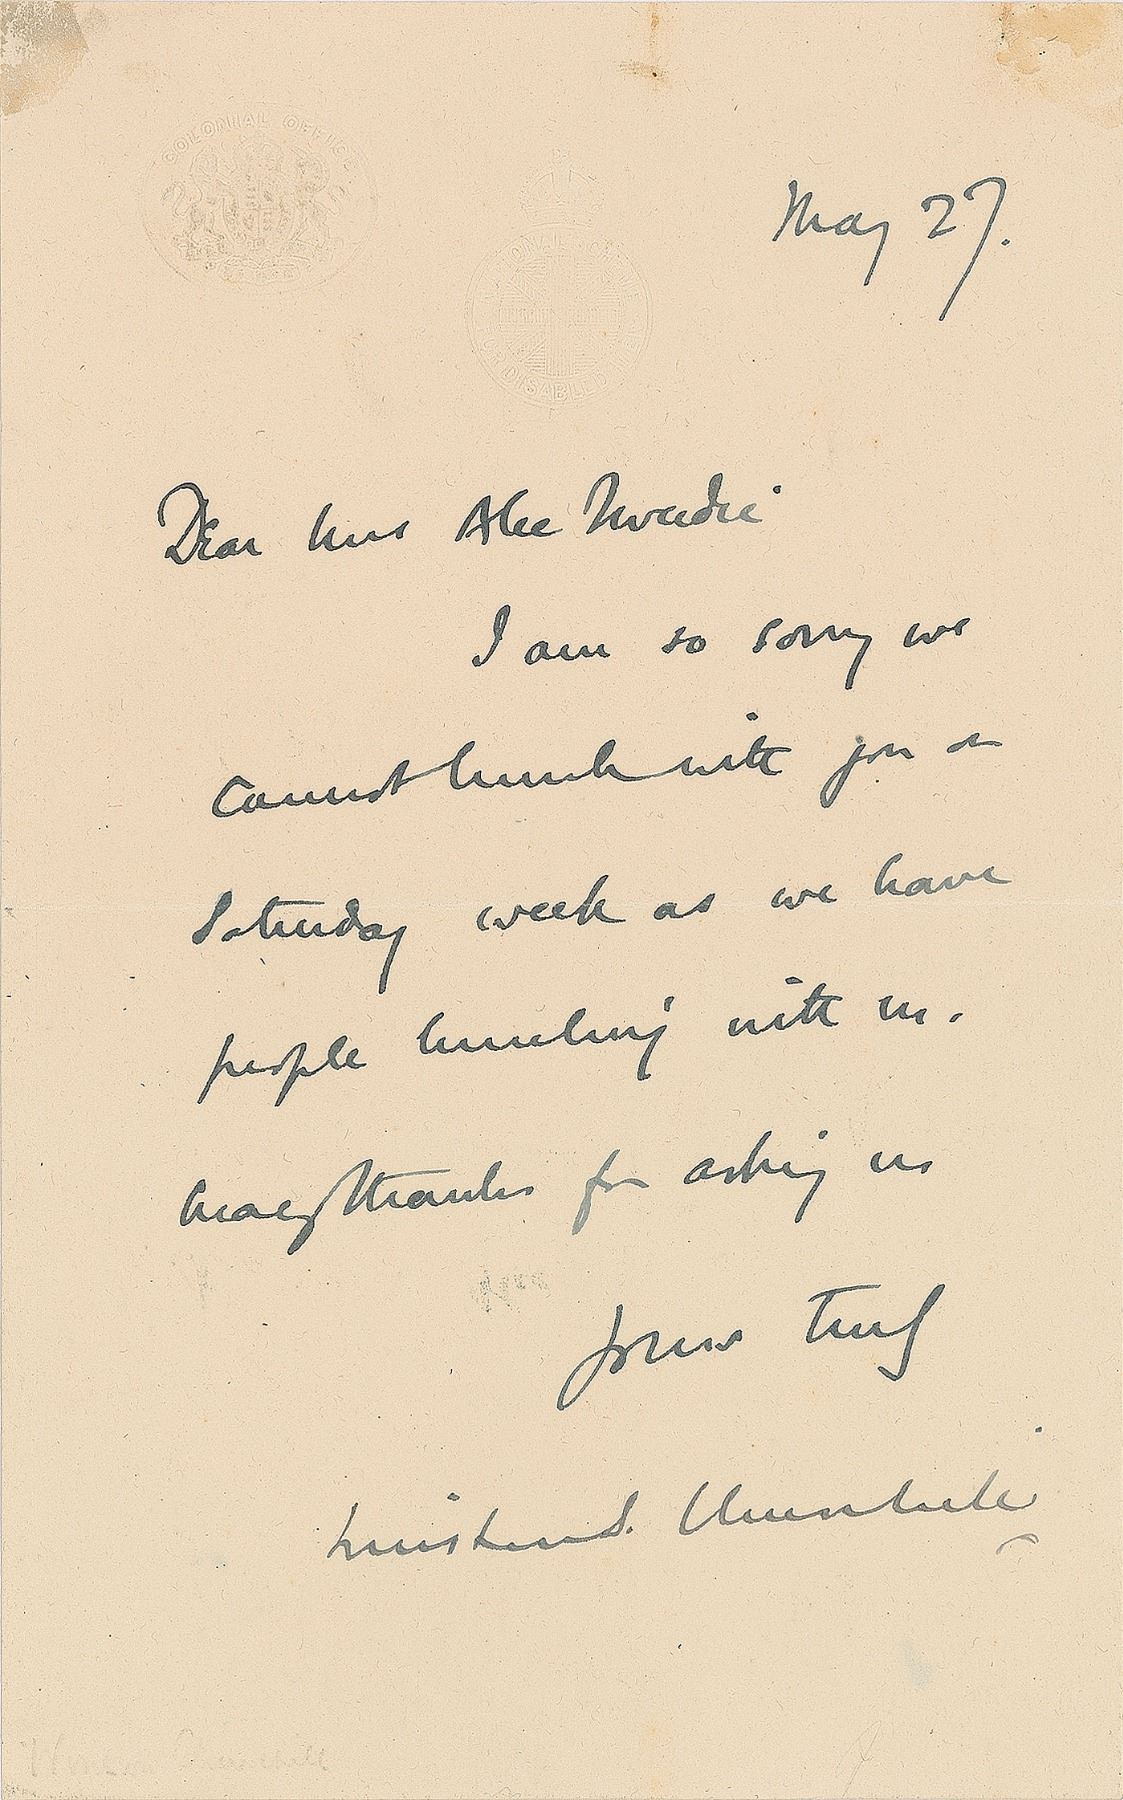 COLONIAL OFFICE
FOR DISABLED
May 27.
Dear Mrs Alec Tweedie
I am so sorry we
cannot lunch with you on
Saturday week as we have
people lunching with us.
Many thanks for asking us
Yours truly
Winston S. Churchill
Winston Churchill